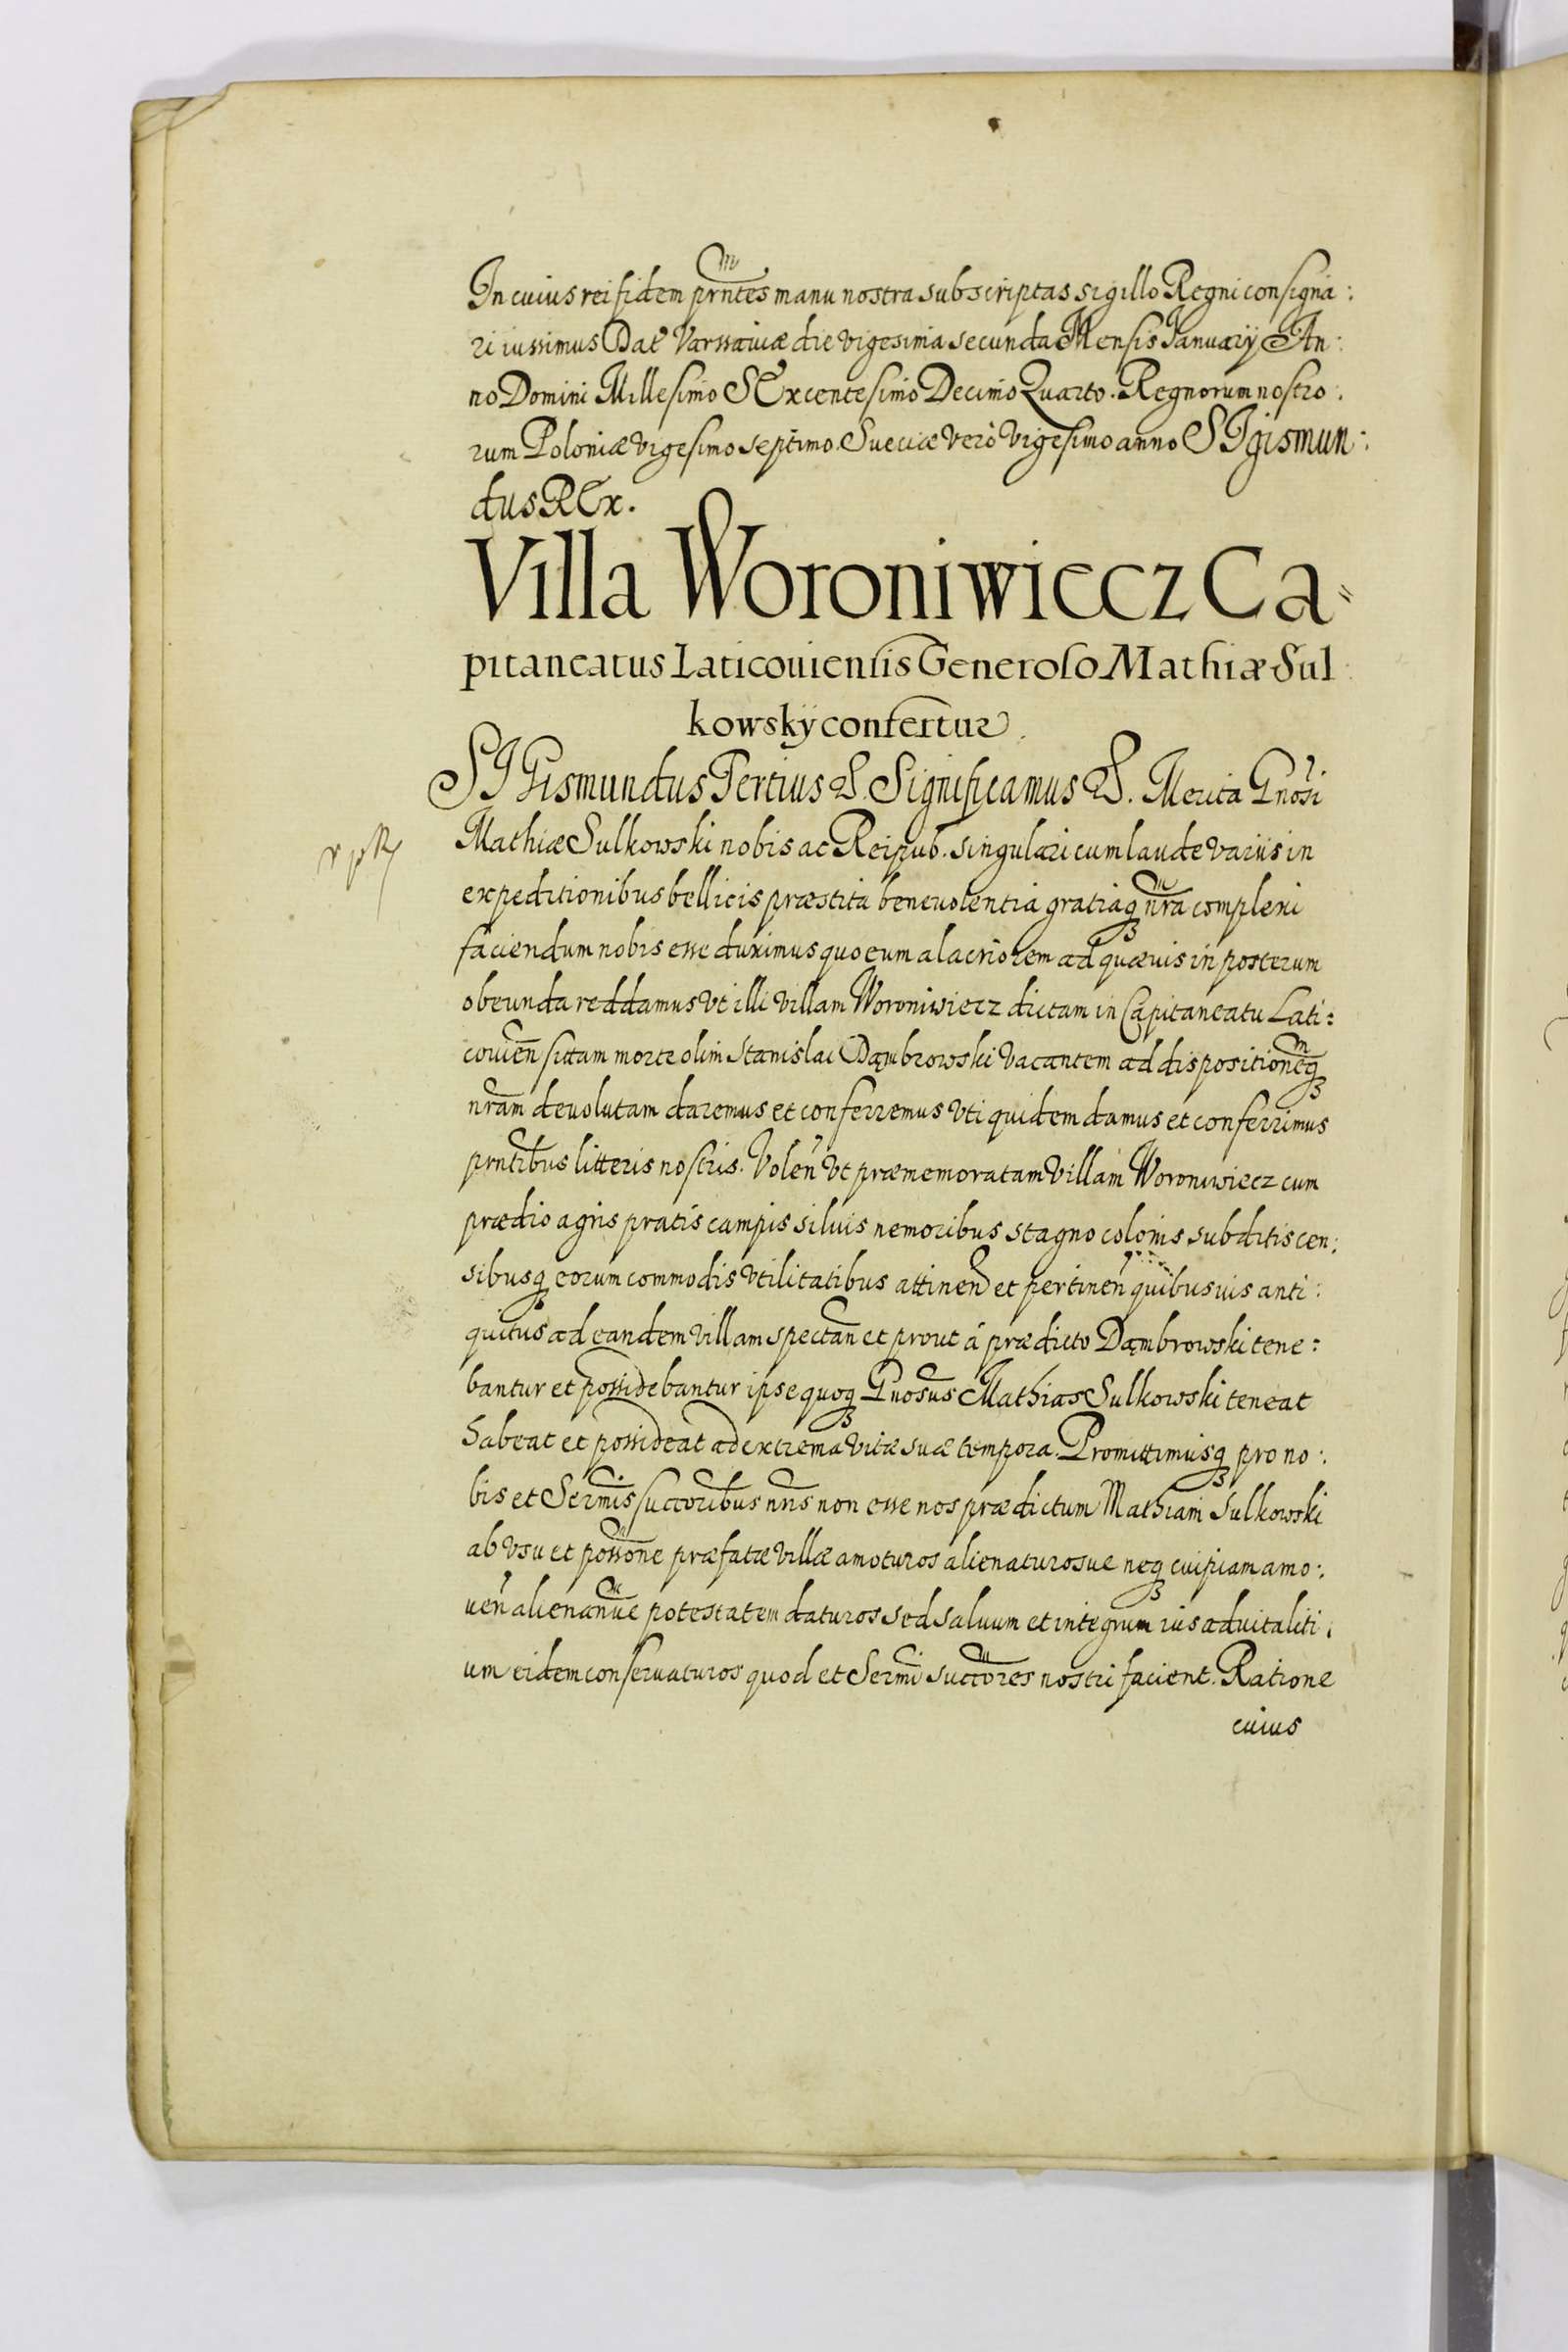 In cuius rei fidem prntes manu nostra subscriptas sigillo Regni consigna:
ri iussimus Dat Varssaviæ die vigesima secunda Mensis Januarÿ An:
no Domini Millesimo SExcentesimo Decimo Quarto. Regnorum nostro:
rum Poloniæ vigesimo septimo. Sueciæ verò vigesimo anno SIgismun:
dus REx.
Villa Woroniwiecz Ca=
pitaneatus Laticouiensis Generoso Mathiæ Sul:
kowskÿ confertur.
SIGismundus Tertius &. Significamus &. Merita Gnosi
Mathiæ Sulkowski nobis ac Reipub. singulari cum laude variis in
expeditionibus bellicis præstita beneuolentia gratiaq nra complexi
faciendum nobis esse duximus quo eum alacriorem ad quæuis in posterum
obeunda reddamus vt illi villam Woroniwiecz dictam in Capitaneatu Lati:
couien sitam morte olim Stanislai Dąmbrowski vacantem ad dispositioneq
nram deuolutam daremus et conferremus vti quidem damus et conferrimus
prntibus litteris nostris. Volen vt præmemoratam villam Woroniwiecz cum
prædio agris pratis campis siluis nemoribus stagno colonis subditis cen:
sibusq eorum commodis vtilitatibus attinen et pertinen quibusuis anti:
quitus ad eandem villam spectan et prout á prædicto Dąmbrowski tene:
bantur et possidebantur ipse quoq Gnosus Mathias Sulkowski teneat
habeat et possideat ad extrema vitæ suæ tempora. Promittimusq pro no:
bis et Sermis succoribus nris non esse nos prædictum Mathiam Sulkowski
ab vsu et possone præfatæ villæ amoturos alienaturosue neq cuipiam amo:
uen alienanue potestatem daturos sed saluum et integrum ius aduitaliti:
um eidem conservaturos quod et Sermi succores nostri facient. Ratione
cuius